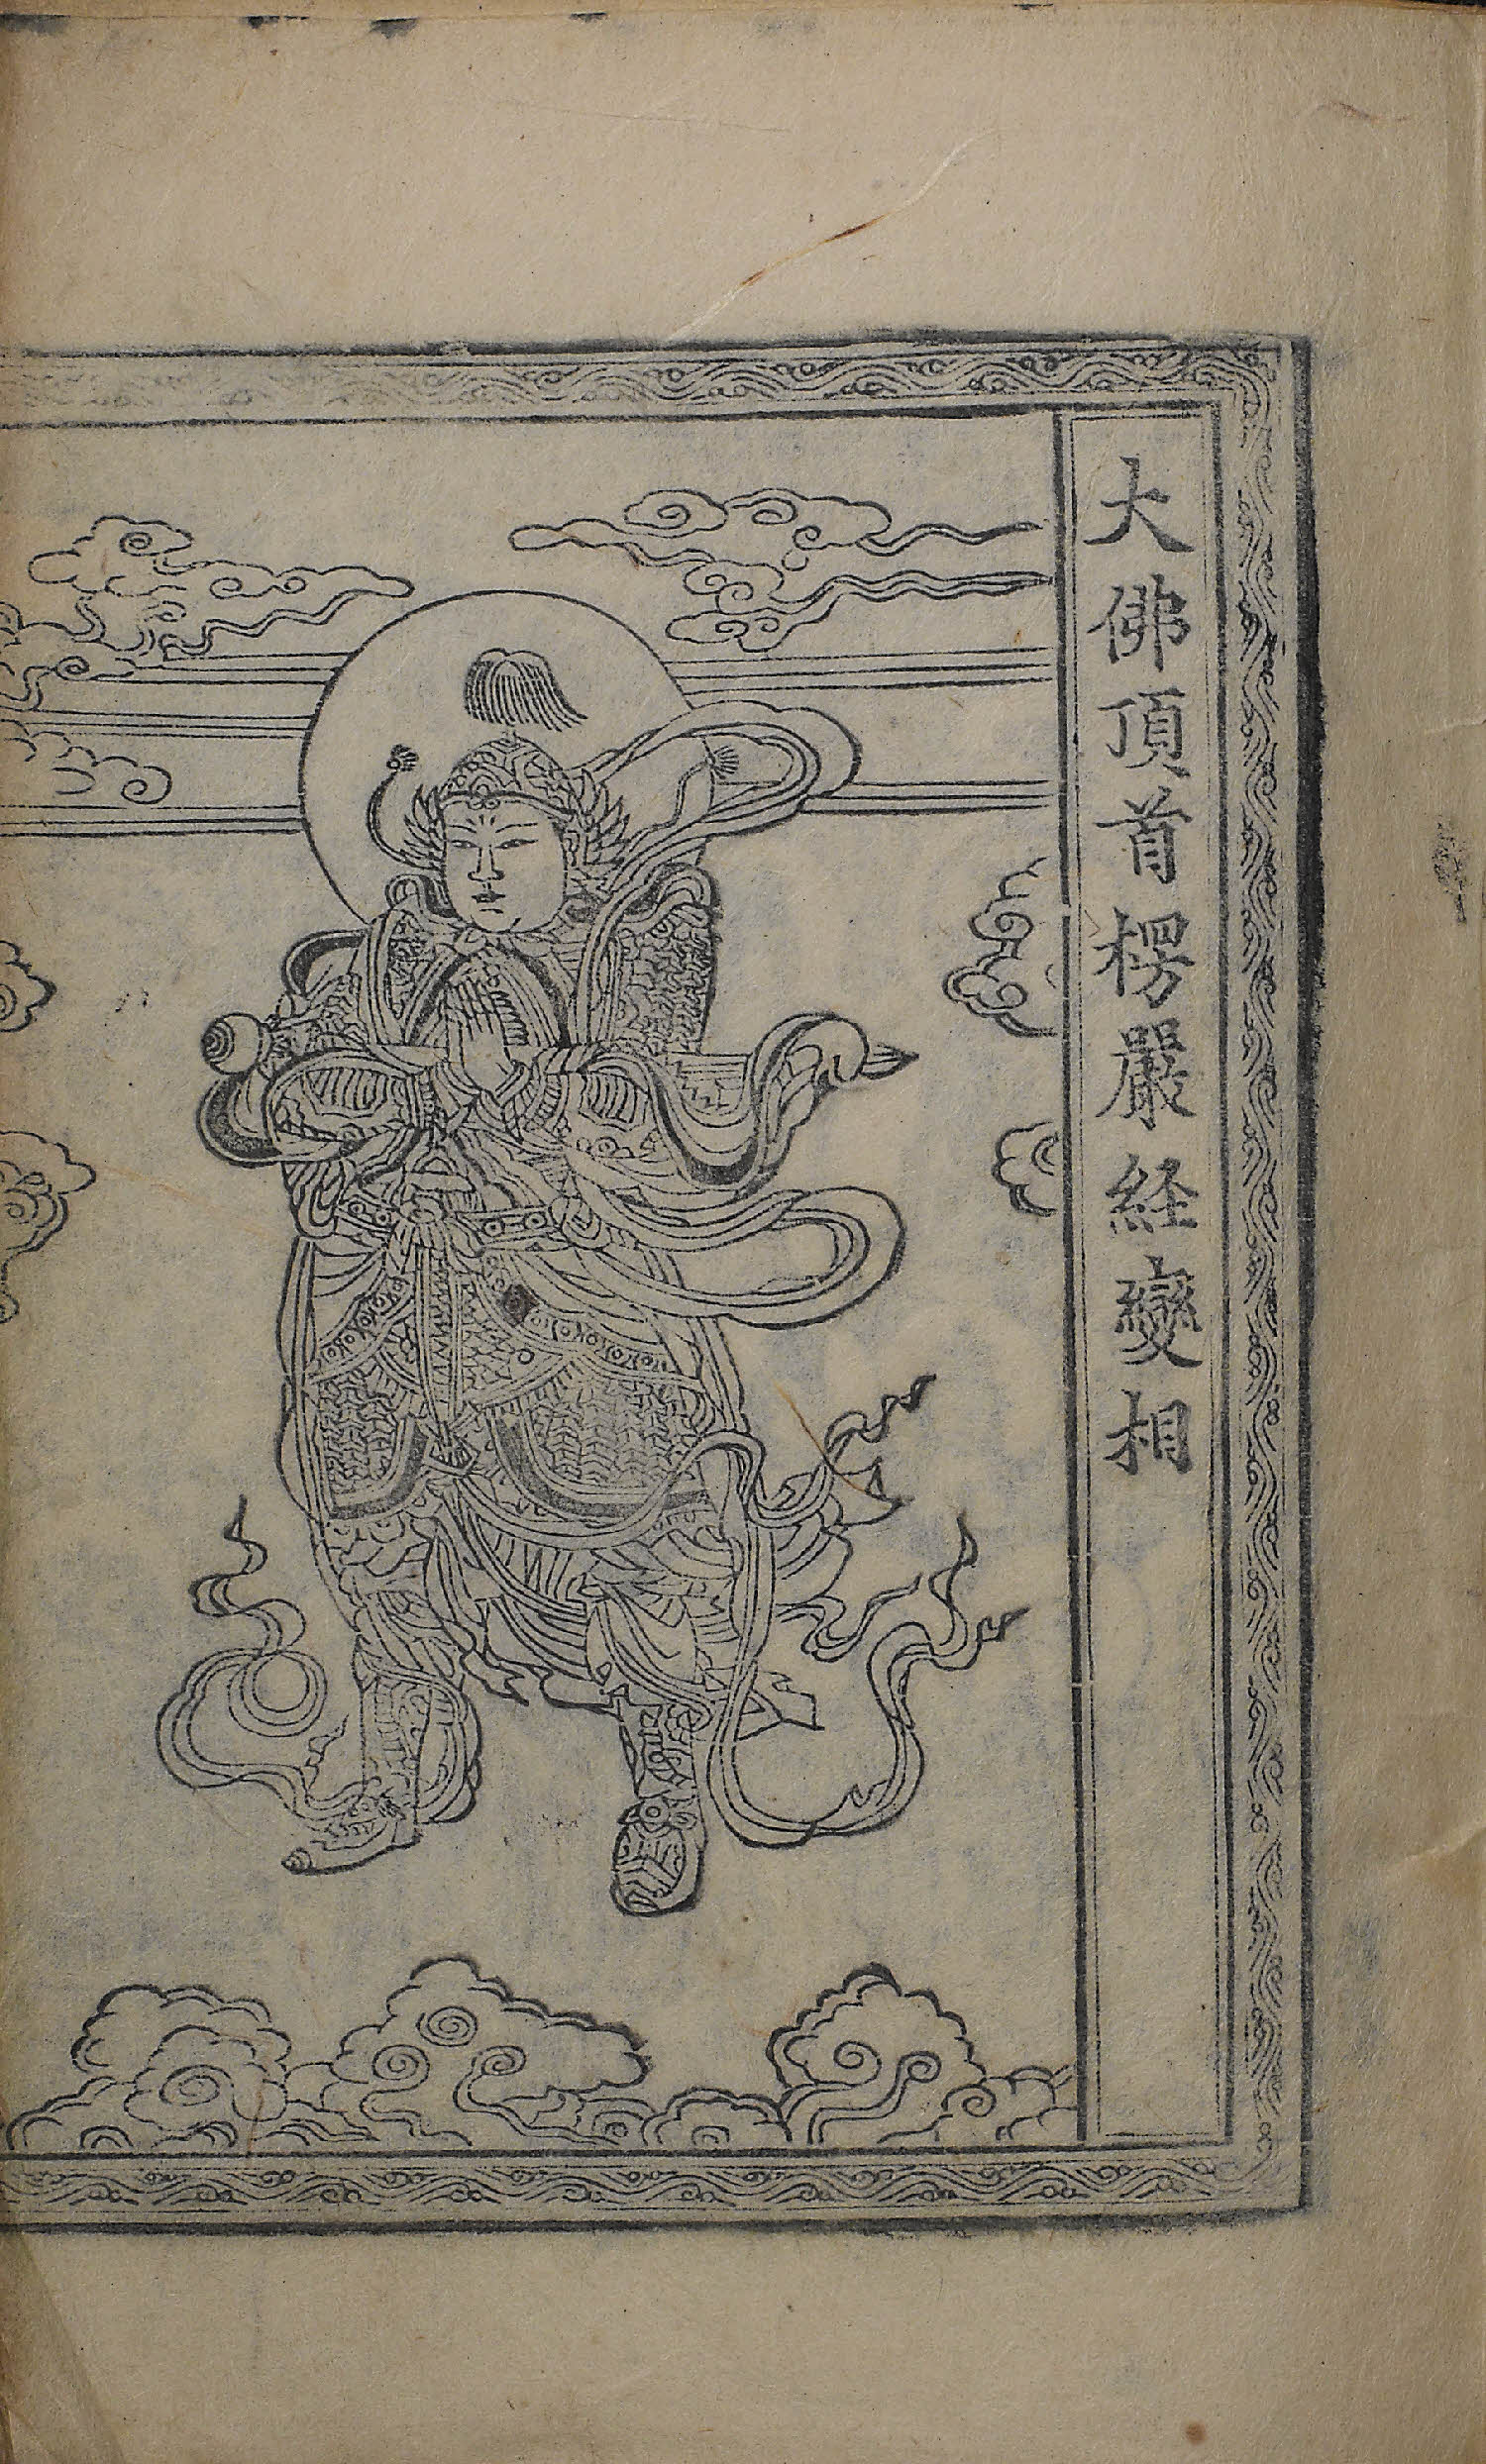 大佛頂首楞嚴経變相